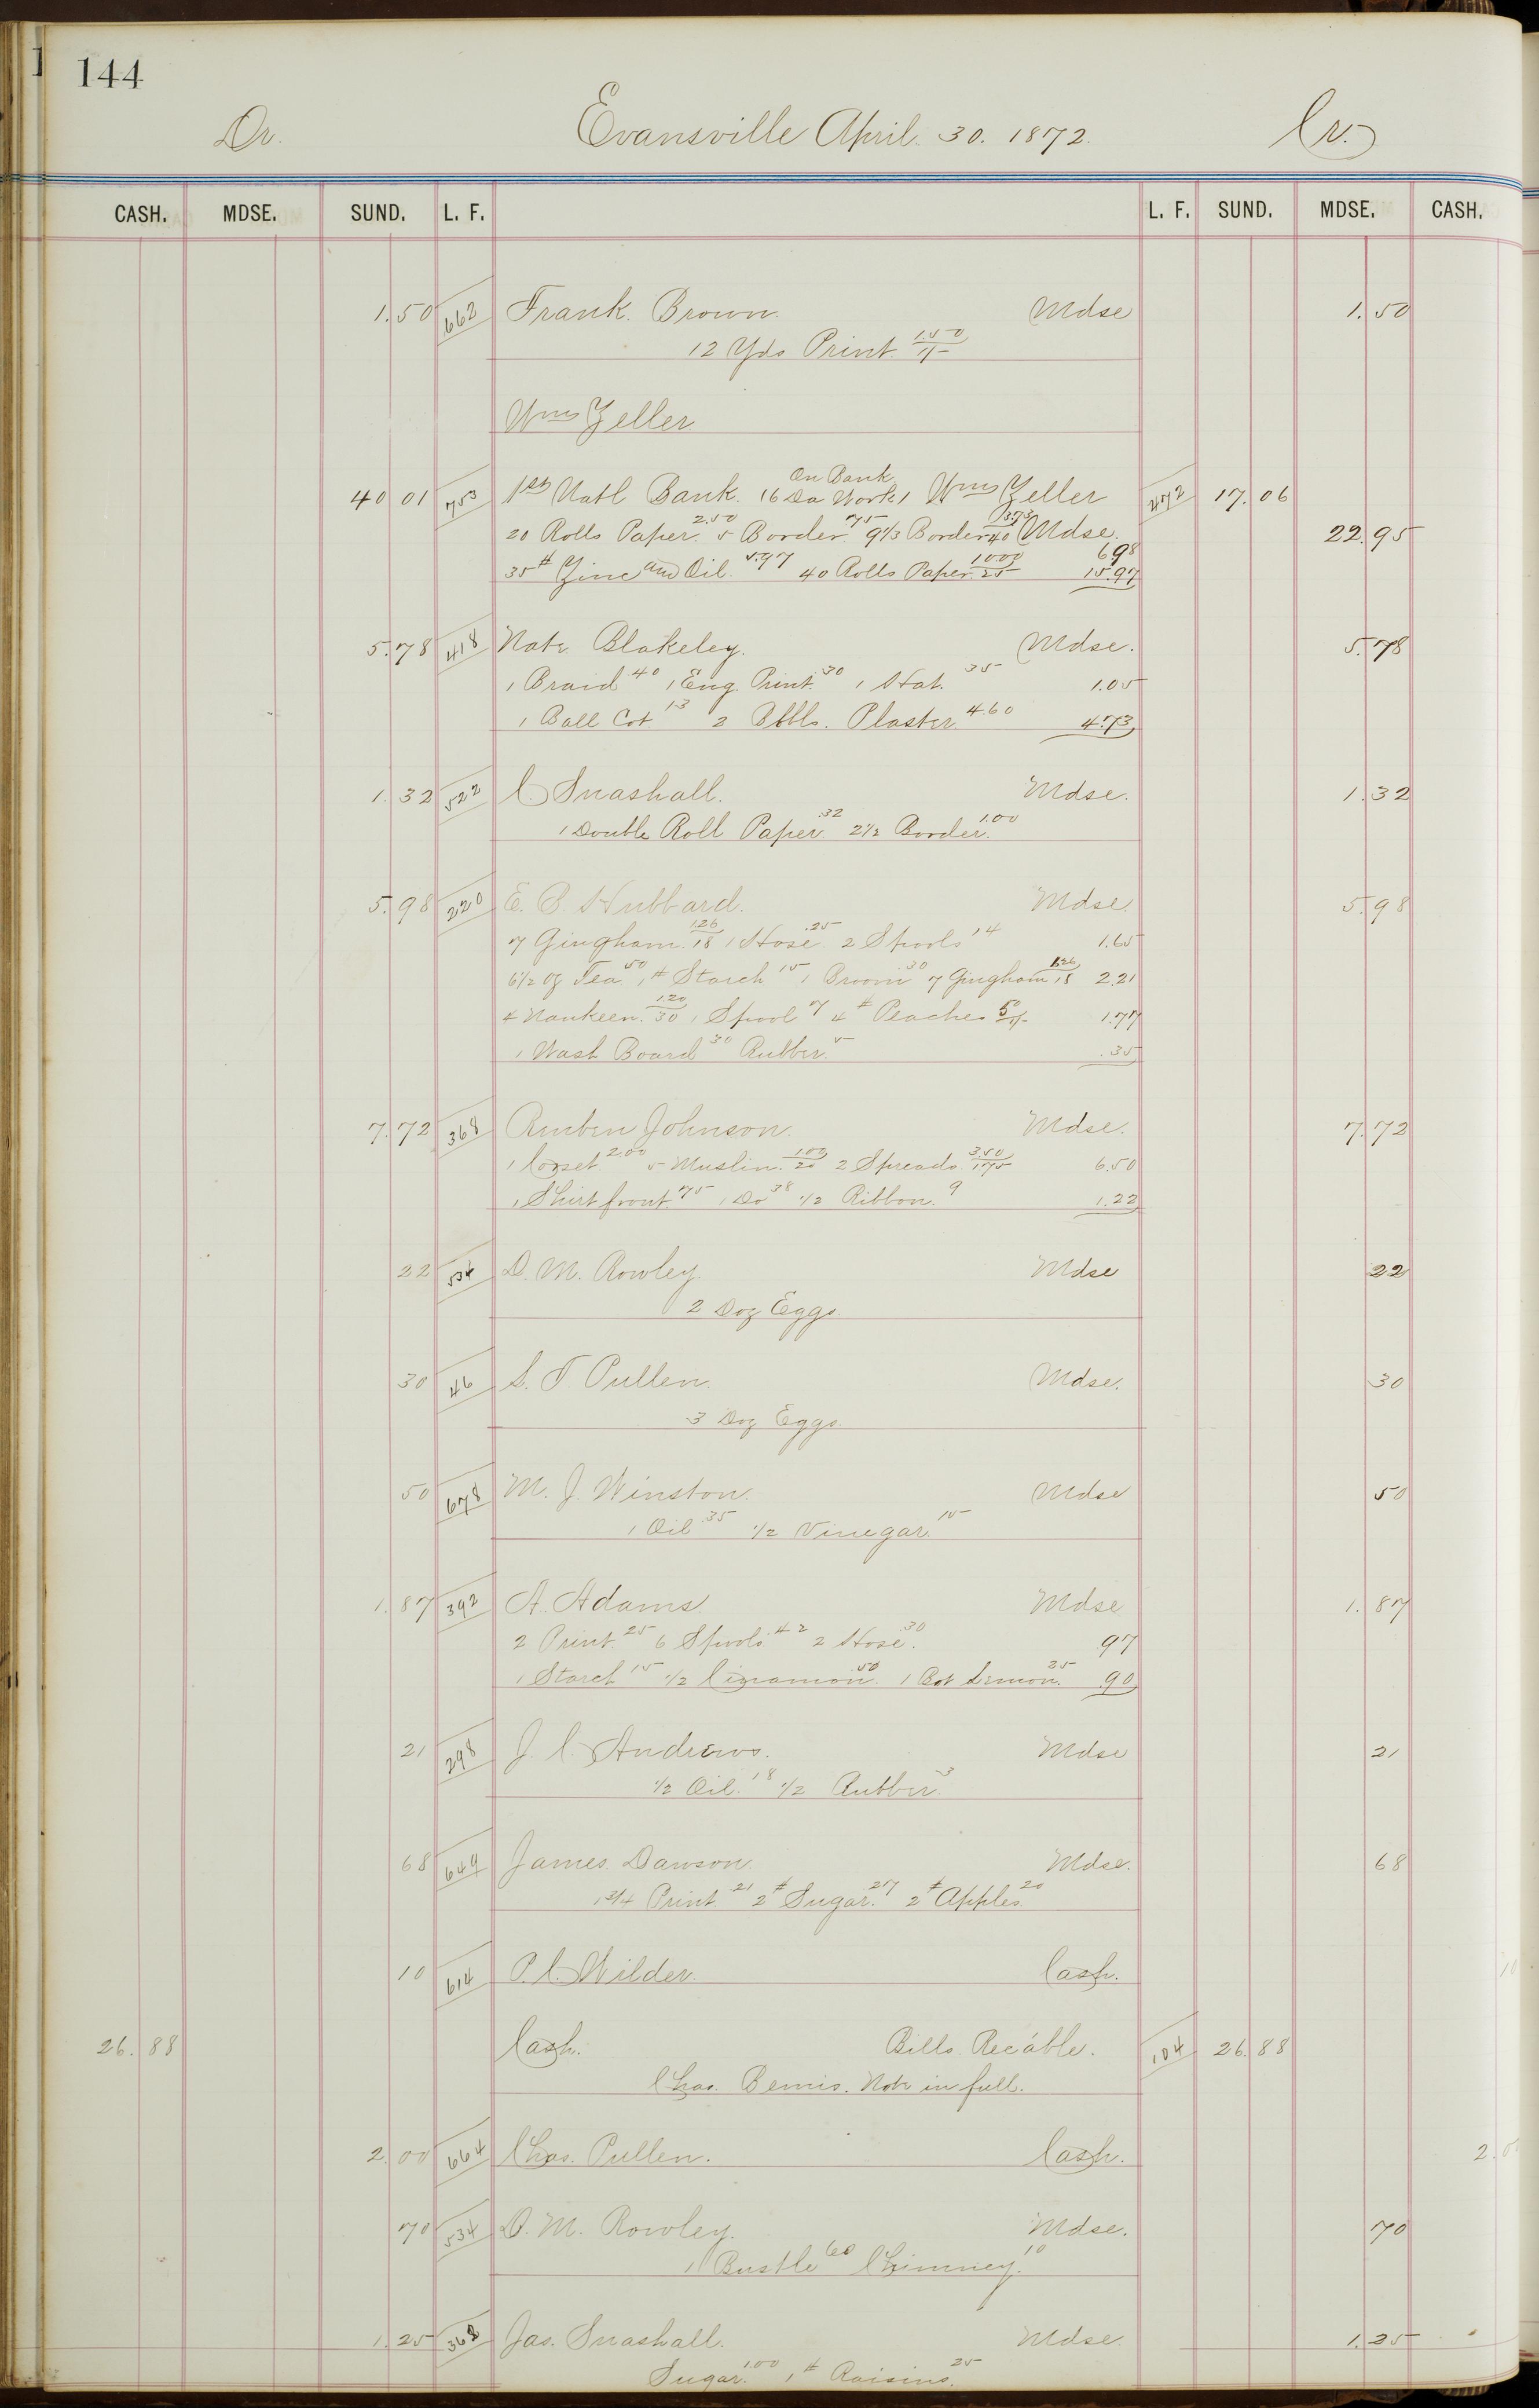 144
Dr. Evansville April. 30. 1872. Cr.
CASH. MDSE. SUND. L. F. L. F. SUND. MDSE. CASH.
1.50 662 Frank. Brown. Mdse 1.50
12 Yds Print 1.50
Wms Zeller.
On Bank
40 01 753 1st Natl Bank. 16 Da Work, Wms Zeller 472 17.06
20 Rolls Paper. 2.50 5 Border 75 9 1/3 Border 40 3.73 Mdse. 22.95
6 98
35 # Zinc and Oil. 5.97 40 Rolls Paper. 10.00 / 25 15.97
5.78 418 Nate Blakeley. Mdse. 5.78
1 Braid 40 1 Eng. Print. 30 1 Hat. 35 1.05
1 Ball Cot 13 2 Bbls. Plaster. 4.60 4.73
1.32 522 C. Snashall. Mdse. 1.32
1 Double Roll Paper .32 2 1/2 Border. 1.00
5.98 220 E. B. Hubbard. Mdse. 5.98
7 Gingham 1.26 / 18 1 Hose .25 2 Spools 14 1.65
6 1/2 oz Tea 50 1 # Starch 15 1 Broom 30 7 Gingham 1.26 / 18 2.21
4 Nankeen. 1.20 / 30 1 Spool 7 4 # Peaches 50 1.77
1 Wash Board 30 Rubber 5 .35
7.72 368 Reuben Johnson. Mdse. 7.72
1 Corset 2.00 5 Muslin. 1.00 / 20 2 Spreads. 3.50 / 1.75 6.50
1 Shirt front. 75 1 Do 38 1/2 Ribbon. 9 1.22
22 534 D. M. Rowley. Mdse 22
2 Doz Eggs.
30 46 S. T. Pullen. Mdse. 30
3 Doz Eggs.
50 678 M. J. Winston. Mdse 50
1 Oil .35 1/2 Vinegar. 15
1.87 392 A. Adams. Mdse 1.87
2 Print. 25 6 Spools 42 2 Hose. 30 97
1 Starch 15 1/2 Cinamon .50 1 Bot Lemon. 25 .90
21 298 J. C. Andrews. Mdse 21
1/2 Oil. 18 1/2 Rubber. 3
68 649 James. Dawson. Mdse. 68
1 3/4 Print. 21 2 # Sugar. 27 2 # Apples. 20
10 614 P. C. Wilder. Cash. 10
26.88 Cash. Bills Recable. 104 26.88
Chas. Bemis. Note in full.
2.00 664 Chas. Pullen. Cash. 2.0
70 534 D. M. Rowley. Mdse. 70
1 Bustle 60 Chimney. 10
1.25 368 Jas. Snashall. Mdse. 1.25
Sugar. 1.00 1 # Raisins. 25